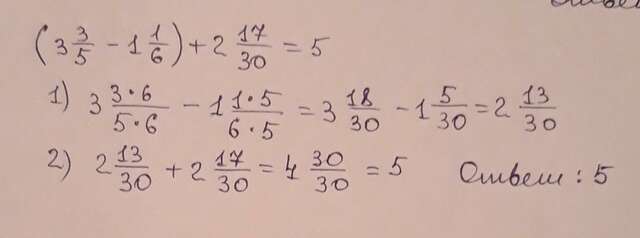 (3 3/5 - 1 1/6) + 2 17/30 = 5
1) 3 3·6/5·6 - 1 1·5/6·5 = 3 18/30 - 1 5/30 = 2 13/30
2) 2 13/30 + 2 17/30 = 4 30/30 = 5 Ответ : 5